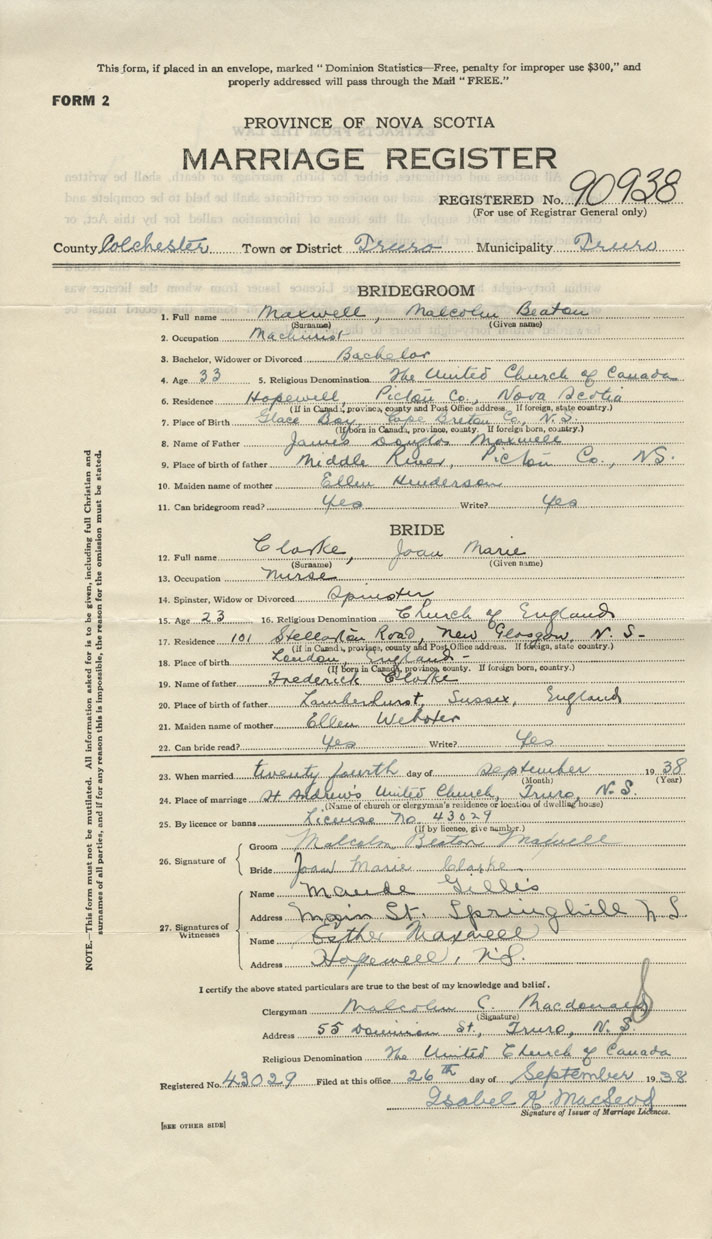 This form, if placed in an envelope, marked "Dominion Statistics—Free, penalty for improper use $300," and
properly addressed will pass through the Mail "FREE."
FORM 2
PROVINCE OF NOVA SCOTIA
MARRIAGE REGISTER
REGISTERED No. 90938
(For use of Registrar General only)
County Colchester Town or District Truro Municipality Truro
BRIDEGROOM
1. Full name Maxwell, Malcolm Beaton
(Surname) (Given name)
2. Occupation Machinist
3. Bachelor, Widower or Divorced Bachelor
4. Age 33 5. Religious Denomination The United Church of Canada
6. Residence Hopewell, Pictou Co., Nova Scotia
(If in Canada, province, county and Post Office address. If foreign, state country.)
7. Place of Birth Glace Bay, Cape Breton Co., N.S.
(If born in Canada, province, county. If foreign born, country.)
8. Name of Father James Douglas Maxwell
9. Place of birth of father Middle River, Pictou Co., N.S.
10. Maiden name of mother Ellen Henderson
11. Can bridegroom read? Yes Write? Yes
BRIDE
12. Full name Clarke, Joan Marie
(Surname) (Given name)
13. Occupation Nurse
14. Spinster, Widow or Divorced Spinster
15. Age 23 16. Religious Denomination Church of England
17. Residence 101 Stellarton Road, New Glasgow, N.S.
(If in Canada, province, county and Post Office address. If foreign, state country.)
18. Place of birth London, England.
(If born in Canada, province, county. If foreign born, country.)
19. Name of father Frederick Clarke
20. Place of birth of father Lamberhurst, Sussex, England
21. Maiden name of mother Ellen Webster
22. Can bride read? Yes Write? Yes
23. When married twenty fourth day of September 1938
(Month) (Year)
24. Place of marriage St Andrew's United Church, Truro, N.S.
(Name of church or clergyman's residence or location of dwelling house)
25. By licence or banns License No. 43029
(If by licence, give number.)
26. Signature of Groom Malcolm Beaton Maxwell
Bride Joan Marie Clarke
27. Signatures of Witnesses Name Maude Gillis
Address Main St. Springhill N.S.
Name Esther Maxwell
Address Hopewell, N.S.
I certify the above stated particulars are true to the best of my knowledge and belief.
Clergyman Malcolm C. Macdonald
(Signature)
Address 55 Dominion St., Truro, N.S.
Religious Denomination The United Church of Canada
Registered No. 43029 Filed at this office 26th day of September 1938
Isabel K MacLeod
Signature of Issuer of Marriage Licences.
[SEE OTHER SIDE]
NOTE.—This form must not be mutilated. All information asked for is to be given, including full Christian and
surnames of all parties, and if for any reason this is impossible, the reason for the omission must be stated.